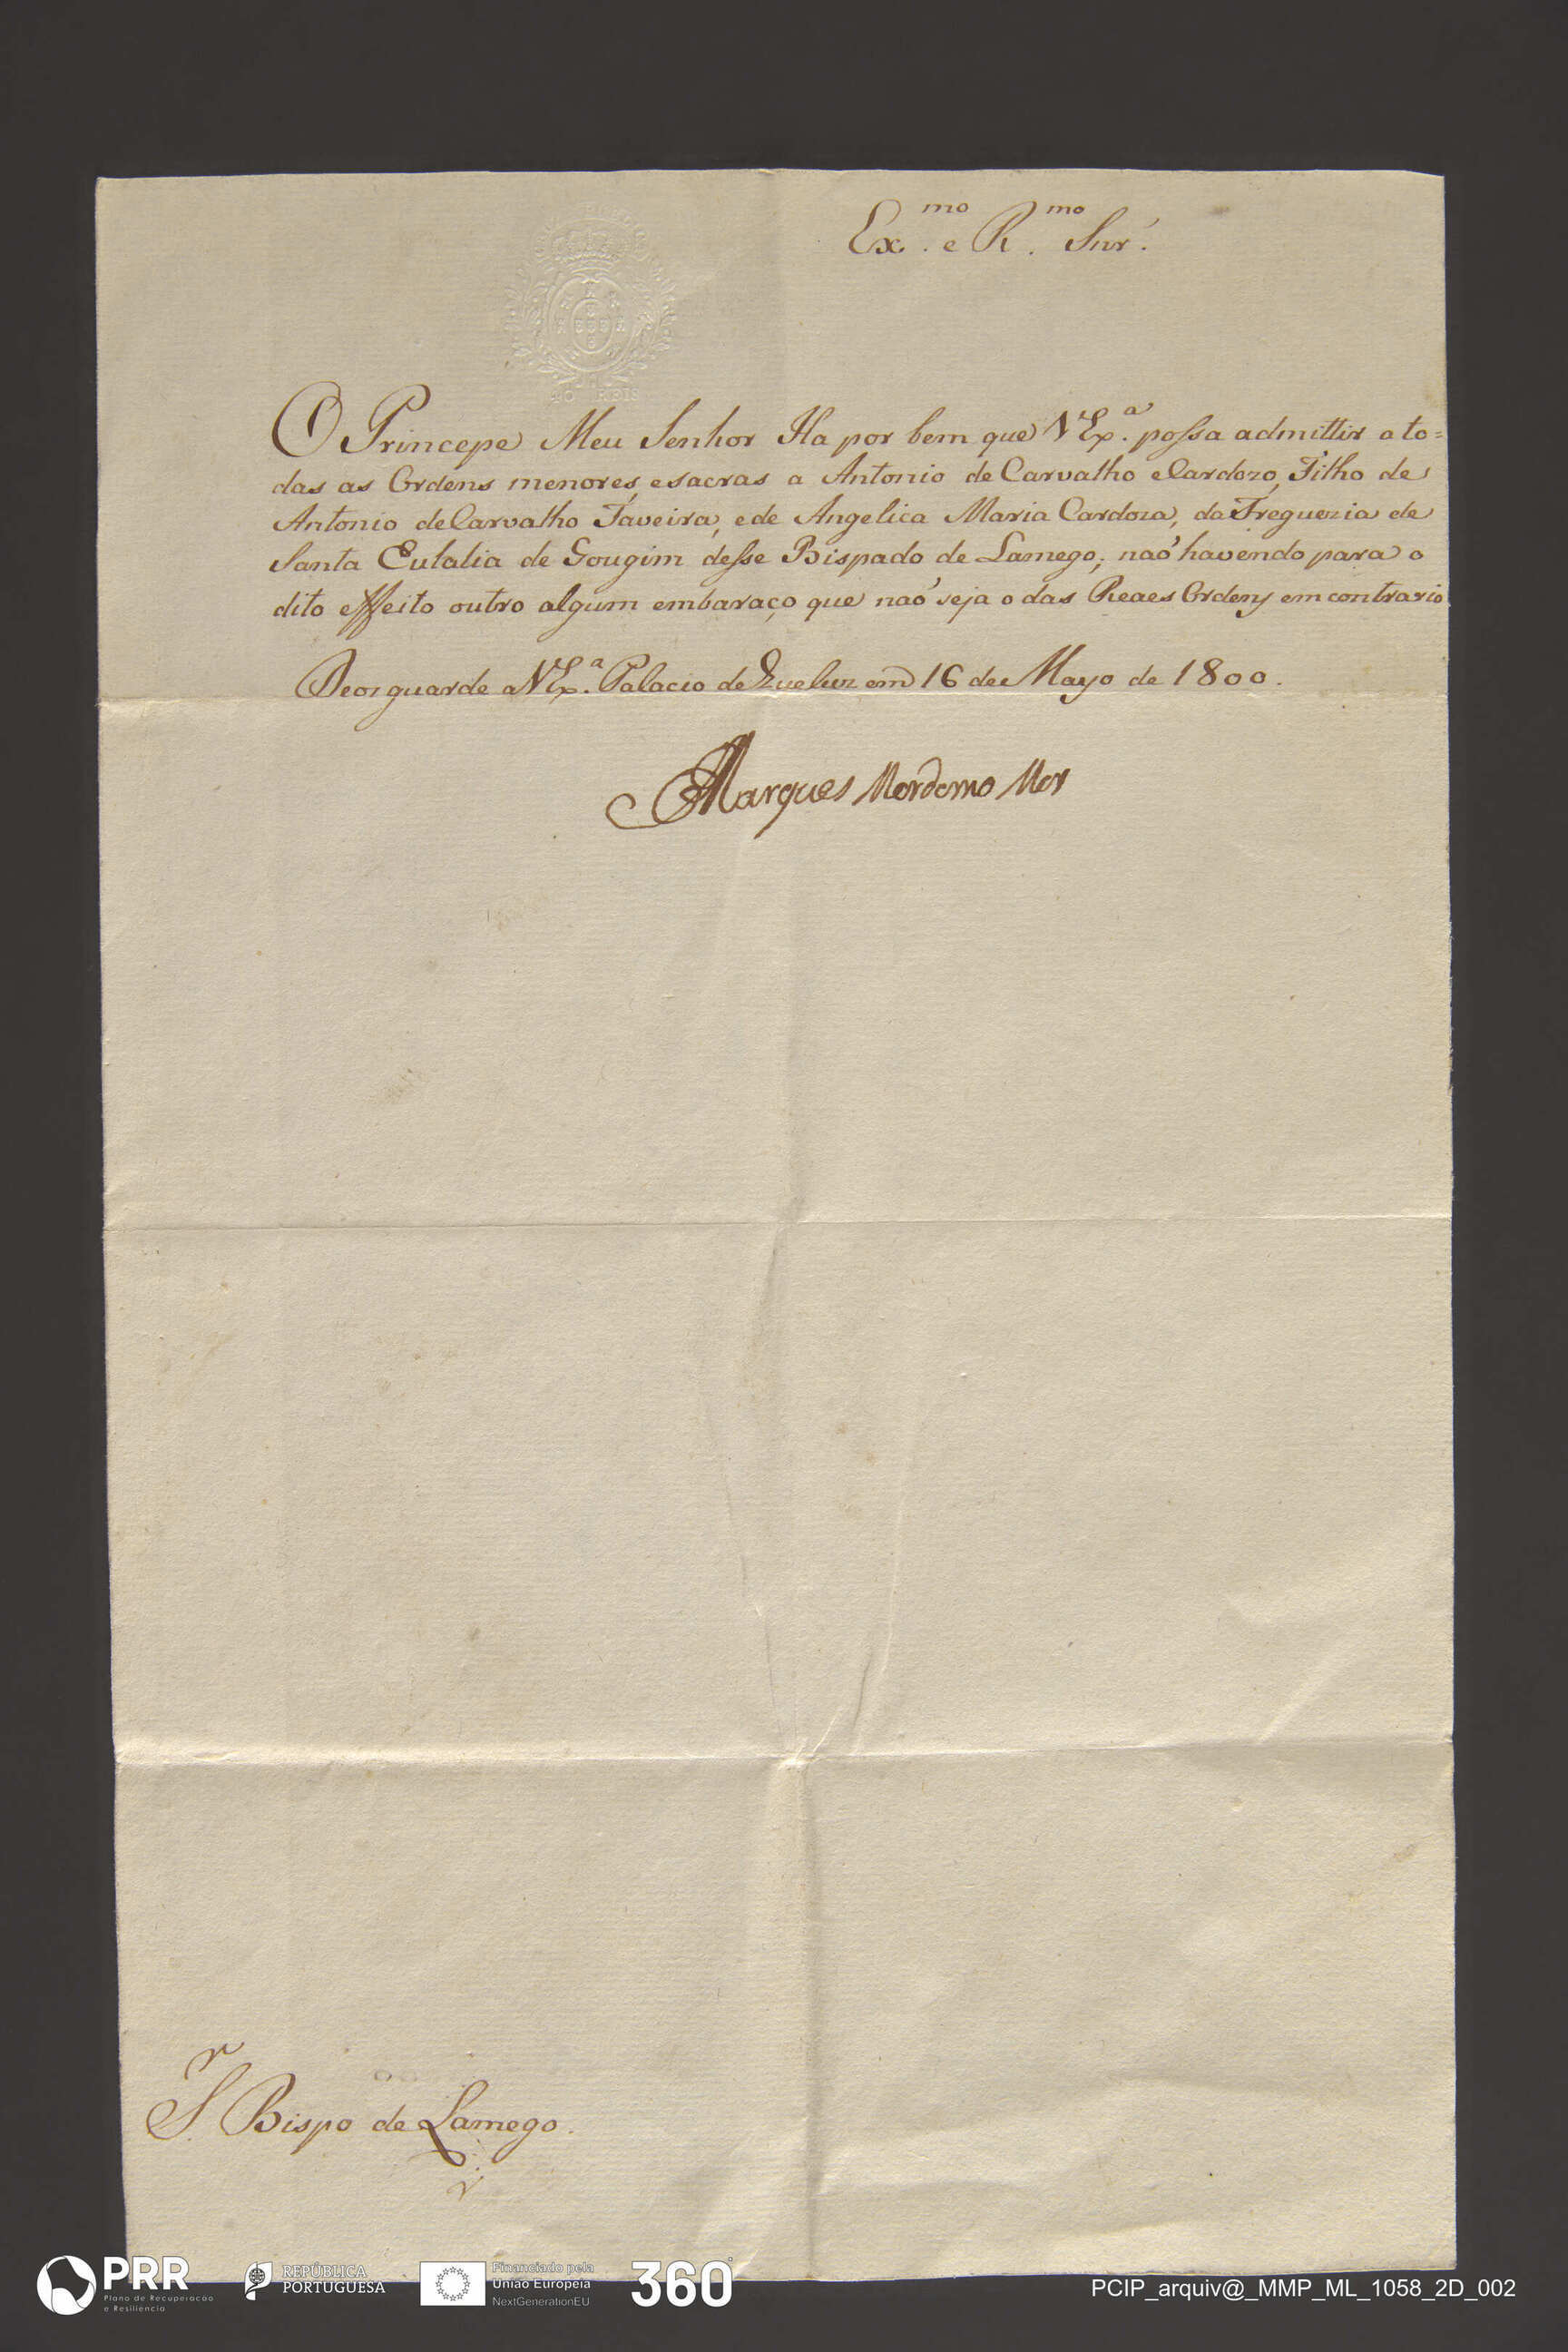 Ex.mo e R.mo Snr.
40 REIS
O Princepe Meu Senhor Ha por bem que V Ex.ª possa admittir a to=
das as Ordens menores, e sacras a Antonio de Carvalho e Cardozo, Filho de
Antonio de Carvalho Taveira, e de Angelica Maria Cardoza, da Freguezia de
Santa Eulalia de Gougim desse Bispado de Lamego; naõ havendo para o
dito effeito outro algum embaraço que naõ seja o das Reaes Ordens em contrario
Deos guarde a V Ex.ª Palacio de Queluz em 16 de Mayo de 1800.
Marques Mordomo Mor
S.r Bispo de Lamego.
PRR
Plano de Recuperação
e Resiliência
REPÚBLICA
PORTUGUESA
Financiado pela
União Europeia
NextGenerationEU
360°
PCIP_arquiv@_MMP_ML_1058_2D_002